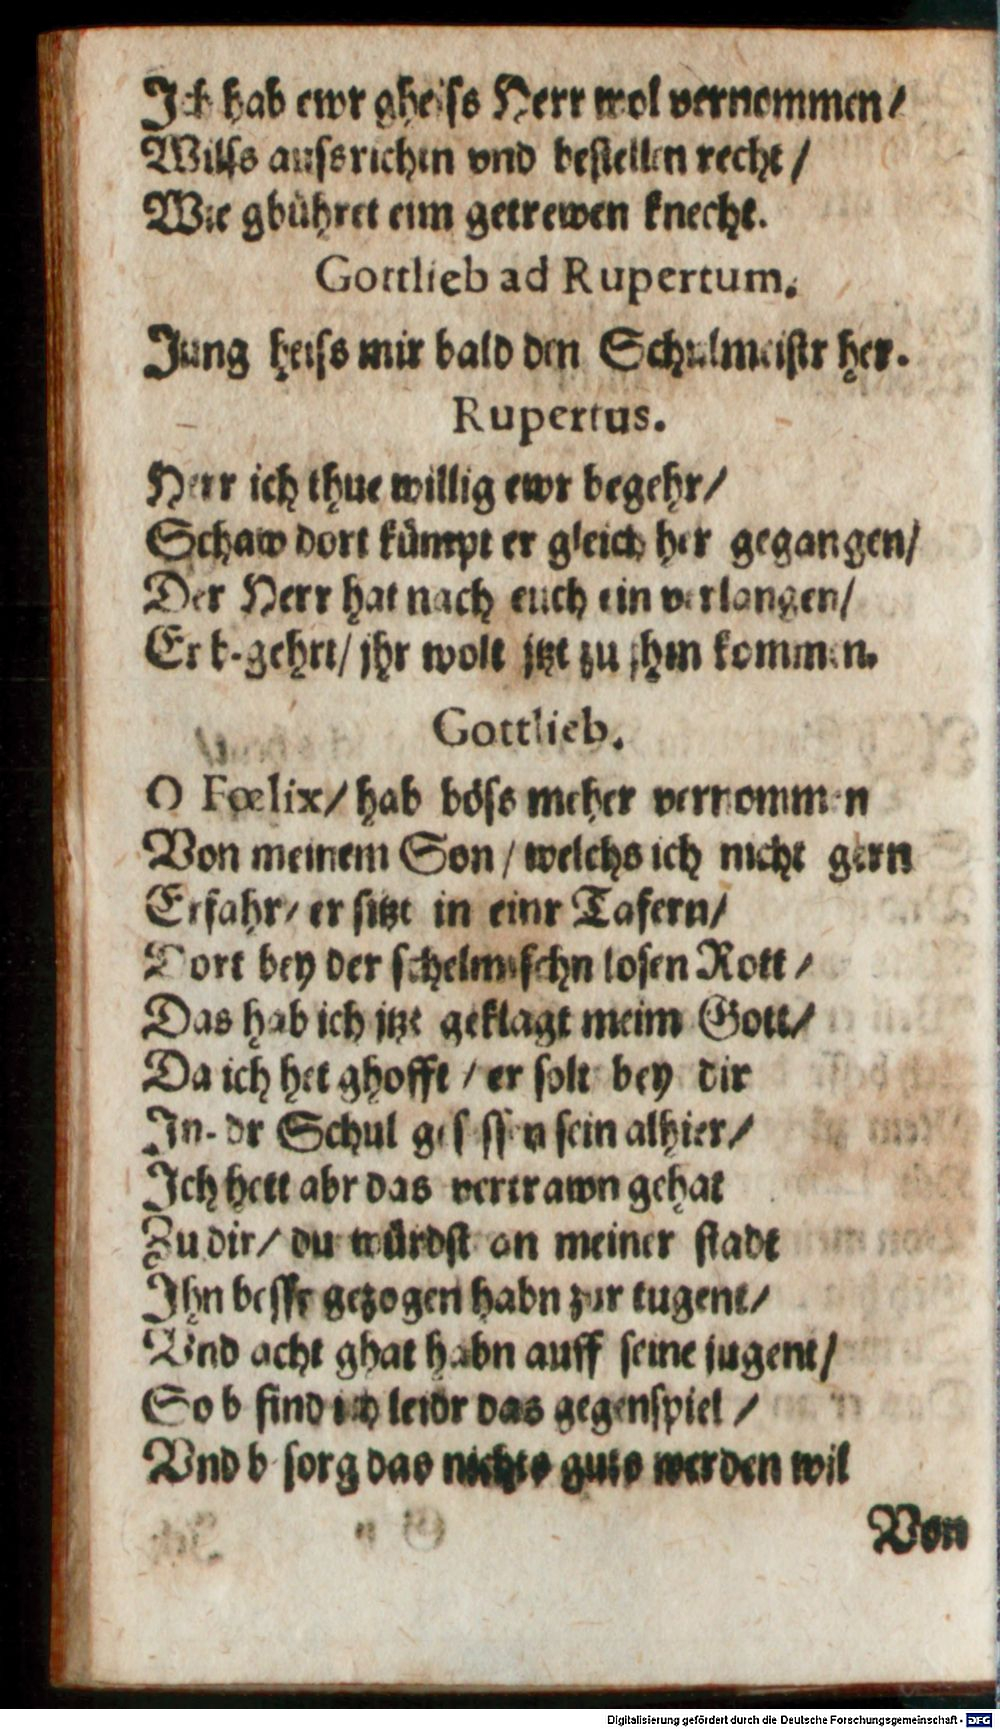 Ich hab ewr gheiſs Herr wol vernommen/
Wilſs auſsrichtn vnd beſtellen recht/
Wie gbühret eim getrewen knecht.
Gottlieb ad Rupertum.
Jung heiſs mir bald den Schulmeiſtr her.
Rupertus.
Herr ich thue willig ewr begehr/
Schaw dort kümpt er gleich her gegangen/
Der Herr hat nach euch ein verlangen/
Er begehrt/ jhr wolt jtzt zu jhm kommen.
Gottlieb.
O Fœlix/ hab böſs meher vernommen
Von meinem Son/ welchs ich nicht gern
Erfahr/ er ſitzt in einr Tafern/
Dort bey der ſchelmiſchn loſen Rott/
Das hab ich jtzt geklagt meim Gott/
Da ich het ghofft/ er ſolt bey dir
In dr Schul geſeſſen ſein alhier/
Ich hett abr das vertrawn gehat
Zu dir/ du würdſt an meiner ſtadt
Ihn beſſr gezogen habn zur tugent/
Vnd acht ghat habn auff ſeine jugent/
So bfind ich leidr das gegenſpiel/
Vnd bſorg das nichts guts werden wil
Von
Digitalisierung gefördert durch die Deutsche Forschungsgemeinschaft - DFG